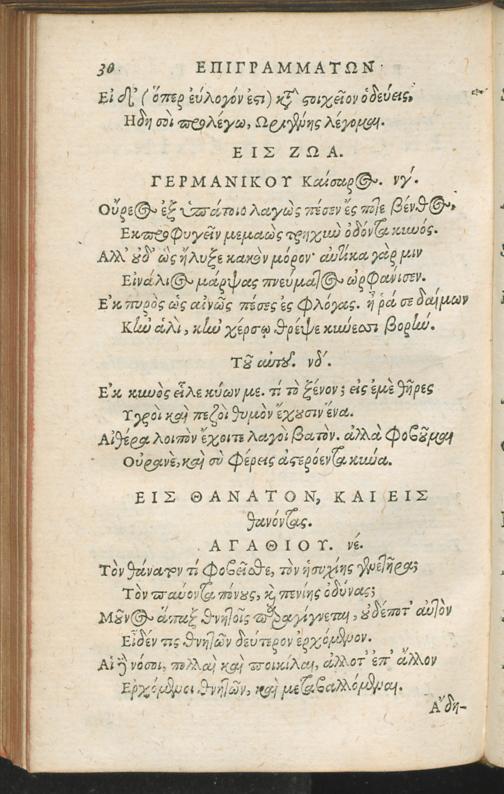 30 ΕΠΙΓΡΑΜΜΑΤΩΝ
Εἰ δ' (ὅπερ εὔλογόν ἐστι) κτ̀ στοιχεῖον ὁδεύεις,
Ηδη σοὶ προλέγω, Ωριγένης λέγομαι.
ΕΙΣ ΖΩΑ.
ΓΕΡΜΑΝΙΚΟΥ Καίσαρος. νγ'.
Οὔρεος ἐξ ὑπάτοιο λαγὼς πέσεν ἔς ποτε βένθος,
Εκπροφυγεῖν μεμαὼς τρηχὺν ὀδόντα κυνός.
Αλλ' οὐδ' ὣς ἤλυξε κακὸν μόρον· αὐτίκα γὰρ μιν
Εἰνάλιος μάρψας πνεύματος ὠρφάνισεν.
Ε'κ πυρὸς ὡς αἰνῶς πέσες ἐς φλόγας. ἦ ρά σε δαίμων
Κὴν ἁλὶ, κὴν χέρσῳ θρέψε κύνεσσι βορήν.
Τοῦ αὐτοῦ. νδ'.
Ε'κ κυνὸς εἷλε κύων με. τί τὸ ξένον; εἰς ἐμὲ θῆρες
Υγροὶ καὶ πεζοὶ θυμὸν ἔχουσιν ἕνα.
Αἰθέρα λοιπὸν ἔχοιτε λαγοὶ βατόν. ἀλλὰ φοβοῦμαι
Οὐρανὲ, καὶ σὺ φέρεις ἀστερόεντα κύνα.
ΕΙΣ ΘΑΝΑΤΟΝ, ΚΑΙ ΕΙΣ
θανόντας.
ΑΓΑΘΙΟΥ. νέ.
Τὸν θάνατον τί φοβεῖσθε, τὸν ἡσυχίης γενετῆρα;
Τὸν παύοντα πόνους, καὶ πενίης ὀδύνας;
Μοῦνος ἅπαξ θνητοῖς παραγίγνεται, οὐδέποτ' αὐτὸν
Εἶδέν τις θνητῶν δεύτερον ἐρχόμενον.
Αἱ δὲ νόσοι, πολλαὶ καὶ ποικίλαι, ἄλλοτ' ἐπ' ἄλλον
Ερχόμεναι θνητῶν, καὶ μεταβαλλόμεναι.
Α'δη-